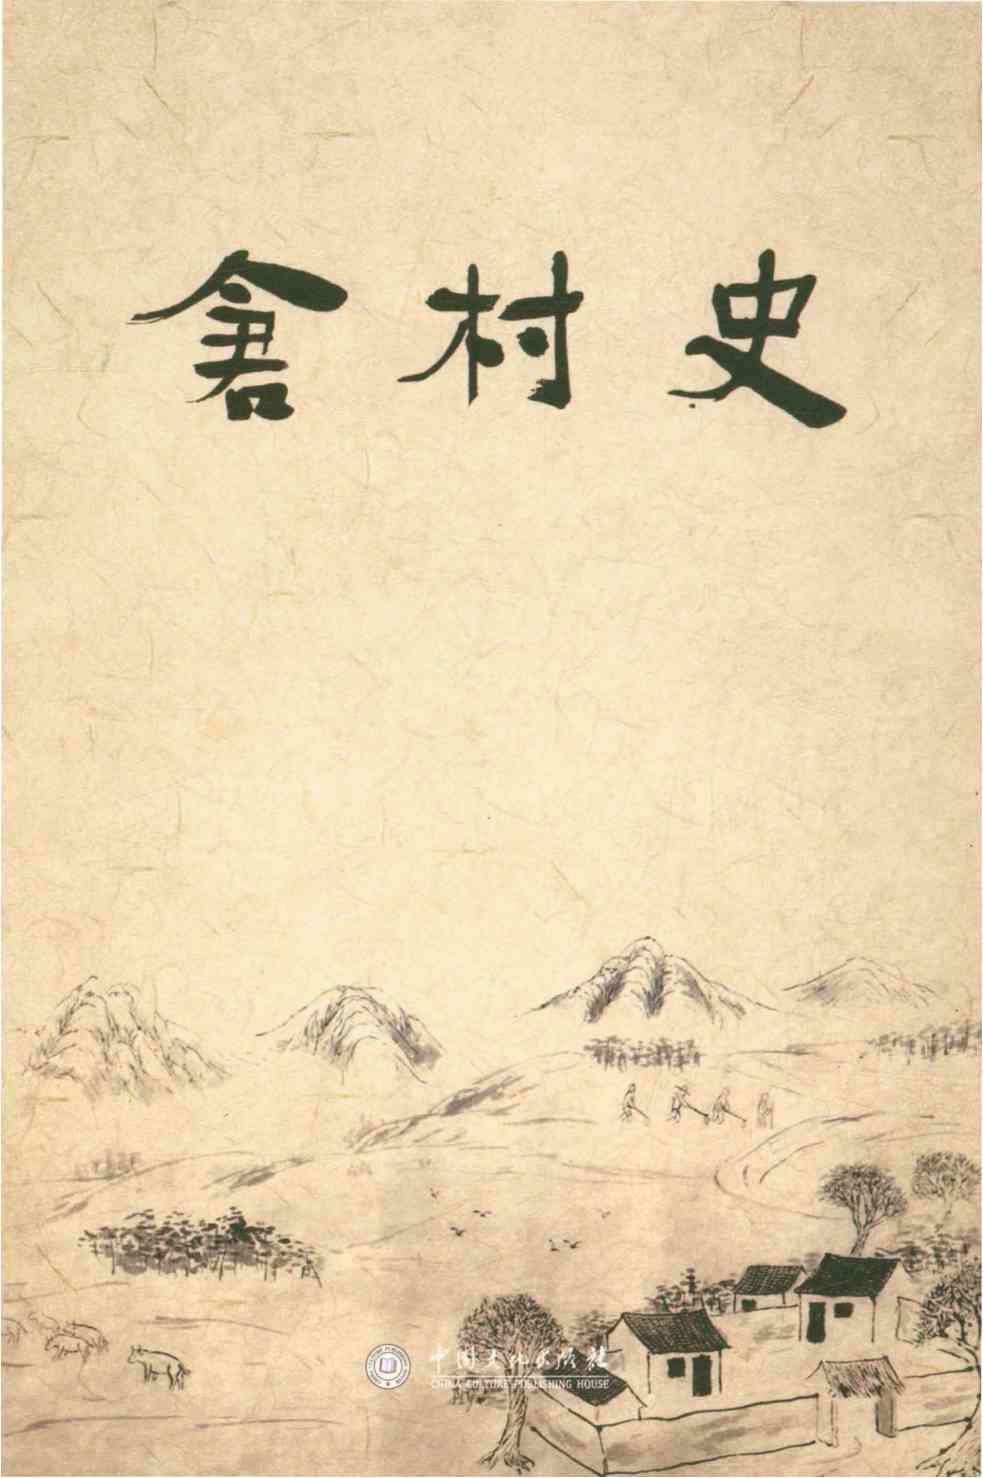 倉村史
中国文化出版社
CHINA CULTURE PUBLISHING HOUSE